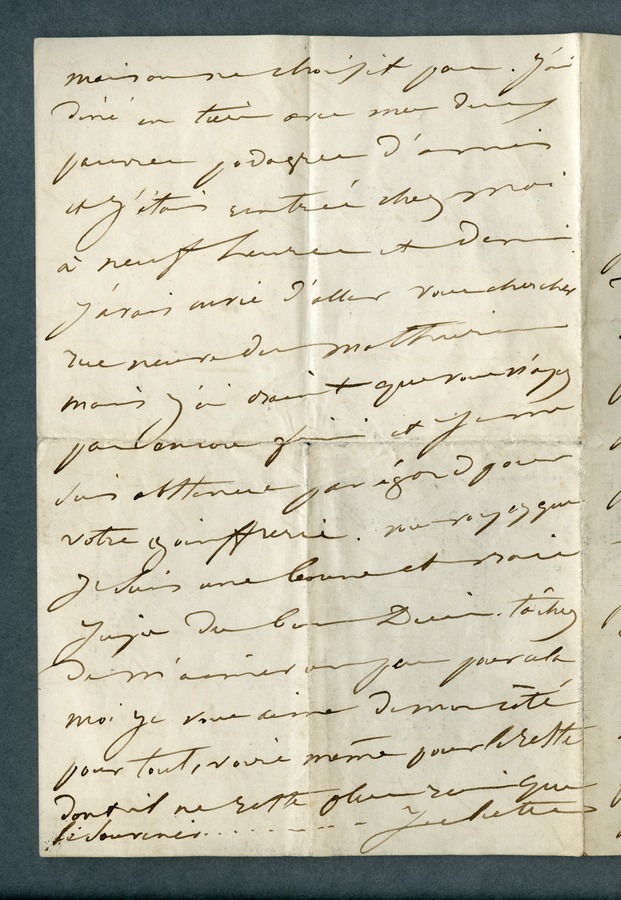 maison ne choisit pas. J'ai
diné en tiers avec mes deux
pauvres podagres d'amis
et j'étais rentrée chez moi
à neuf heures et demi
j'avais envie d'aller vous chercher
rue neuve des mathurins
mais j'ai craint que vous n'ayez
pas encore fini et je me
suis abstenue par égard pour
votre goinffrerie. vous voyez que
je suis une bonne et vraie
Juju du bon Dieu. tâchez
de m'aimer un peu pour cela
moi je vous aime de mon côté
pour tout, voire même pour le reste
dont il ne reste plus rien que
le souvenir.........
Juliette